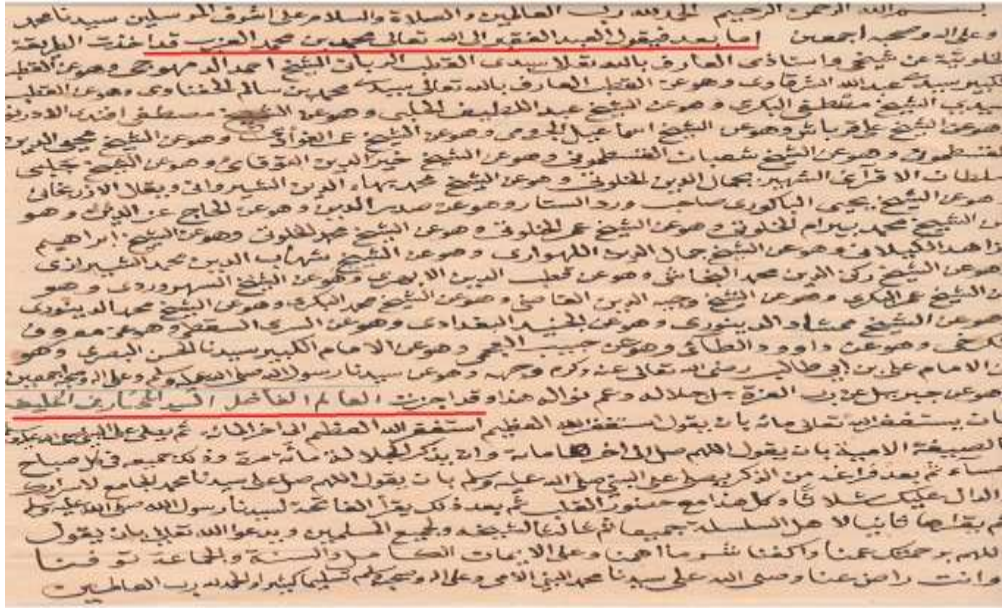 بسم الله الرحمن الرحيم الحمد لله رب العالمين والصلاة والسلام على اشرف المرسلين سيدنا محمد
وعلى اله وصحبه اجمعين اما بعد فيقول العبد الفقير الى الله تعالى محمد بن محمد العزب قد اخذت الطريقة
الخلوتية عن شيخي واستاذي العارف بالله تعالى سيدي القطب الرباني الشيخ احمد الدمهوجي وهو عن القطب
الكبير سيدي عبد الله الشرقاوي وهو عن القطب العارف بالله تعالى سيدي محمد بن سالم الحفناوي وهو عن القطب
سيدي الشيخ مصطفى البكري وهو عن الشيخ عبد اللطيف الحلبي وهو عن الشيخ مصطفى افندي الادرنوي
وهو عن الشيخ علي قرباش وهو عن الشيخ اسماعيل الجرومي وهو عن الشيخ عمر الفؤادي وهو عن الشيخ محيي الدين
القسطموني وهو عن الشيخ شعبان القسطموني وهو عن الشيخ خير الدين التوقادي وهو عن الشيخ چلبي
سلطان الاقرائي الشهير بجمال الدين الخلوتي وهو عن الشيخ محمد بهاء الدين الشيرواني ويقال الاذرنجاني
وهو عن الشيخ يحيى الباكوري صاحب ورد الستار وهو عن صدر الدين وهو عن الحاج عز الدين وهو
عن الشيخ محمد بيرام الخلوتي وهو عن الشيخ عمر الخلوتي وهو عن الشيخ محمد الخلوتي وهو عن الشيخ ابراهيم
الزاهد الكيلاني وهو عن الشيخ جمال الدين اللهواري وهو عن الشيخ شهاب الدين محمد الشيرازي
وهو عن الشيخ ركن الدين محمد النجاشي وهو عن قطب الدين الابهري وهو عن الشيخ السهروردي وهو
عن الشيخ عمر البكري وهو عن الشيخ وجيه الدين القاضي وهو عن الشيخ محمد البكري وهو عن الشيخ محمد الدينوري
وهو عن الشيخ ممشاد الدينوري وهو عن الجنيد البغدادي وهو عن السري السقطي وهو عن معروف
الكرخي وهو عن داوود الطائي وهو عن حبيب العجمي وهو عن الامام الكبير سيدنا الحسن البصري وهو
عن الامام علي بن ابي طالب رضي الله تعالى عنه وكرم وجهه وهو عن سيدنا رسول الله صلى الله عليه وسلم وعلى اله وصحبه اجمعين
وهو عن جبريل عن رب العزة جل جلاله وعم نواله هذا وقد اجزت العالم الفاضل السيد المختار في الخليفة
بان يستغفر الله تعالى مائة بان يقول استغفر الله العظيم استغفر الله العظيم الى اخر المائة ثم يصلي على النبي صلى الله عليه وسلم
بالصيغة الامية بان يقول اللهم صل الى اخرها مائة وان يذكر الجلالة مائة مرة وذلك جميعه في كل صباح
ومساء ثم بعد فراغه من الذكر يصلي على النبي صلى الله عليه وسلم بان يقول اللهم صل على سيدنا محمد الجامع لاسرارك
والدال عليك ثلاثا وكل هذا مع حضور القلب ثم بعد ذلك يقرأ الفاتحة لسيدنا رسول الله صلى الله عليه وسلم
ثم يقراها ثانيا لاهل السلسلة جميعا ثم ثالثا لشيخه ولجميع المسلمين ويدعو الله تعالى بان يقول
اللهم برحمتك عمنا واكفنا شر ما اهمنا وعلى الايمان الكامل والسنة والجماعة توفنا
وانت راض عنا وصلى الله على سيدنا محمد النبي الامي وعلى اله وصحبه وسلم تسليما كثيرا والحمد لله رب العالمين